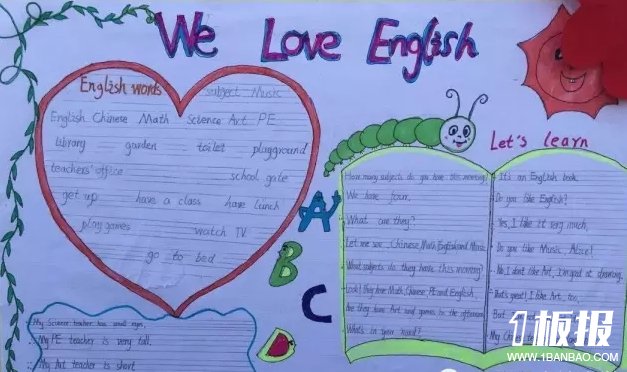 We Love English
English words subject Music
English Chinese Math Science Art PE
library garden toilet playground
teachers' office school gate
get up have a class have lunch
play games watch TV
go to bed
My Science teacher has small eyes,
My PE teacher is very tall.
My Art teacher is short
A
B
C
Let's learn
How many subjects do you have this morning?
We have four.
What are they?
Let me see, Chinese, Math, English and Music
What subjects do they have this morning?
Look! they have Math, Chinese, PE and English
Are they have Art and games in the afternoon
What's in your hand?
It's an English book.
Do you like English?
Yes, I like it very much,
Do you like Music, Alice?
No, I don't like Art, I'm good at drawing.
That's great! I like Art, too,
But
My Ch
1板报
WWW.1BANBAO.COM